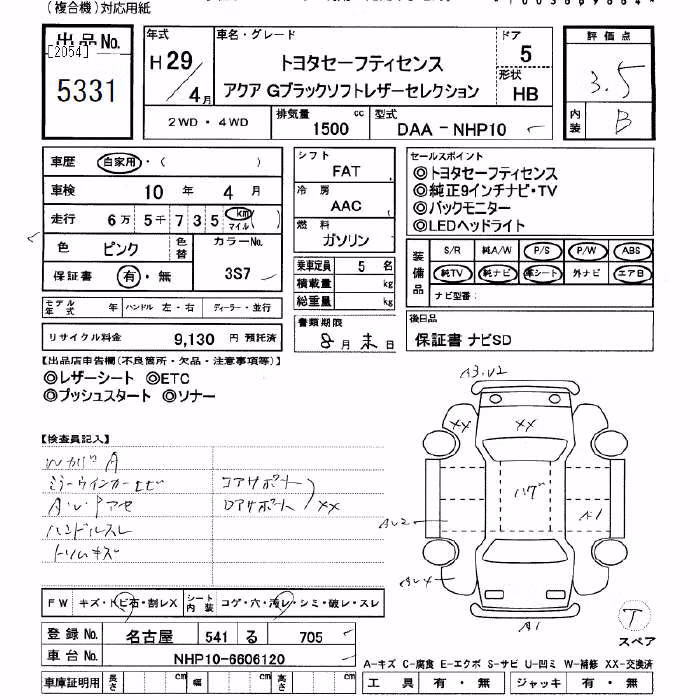 (複合機)対応用紙
出品No.
[2054]
5331
年式
H 29 / 4 月
車名・グレード
トヨタセーフティセンス
アクア Gブラックソフトレザーセレクション
ドア
5
形状
HB
2WD ・ 4WD
排気量 1500 cc
型式 DAA - NHP10
評価点
3.5
内装 B
車歴 自家用・( )
車検 10 年 4 月
走行 6万 5千 7 3 5 km マイル
色 ピンク 色替 カラーNo.
3S7
保証書 有・無
モデル年式 年 ハンドル 左・右 ディーラー・並行
リサイクル料金 9,130 円 預託済
シフト
FAT
冷房
AAC
燃料
ガソリン
乗車定員 5 名
積載量 kg
総重量 kg
書類期限
8月末日
セールスポイント
◎トヨタセーフティセンス
◎純正9インチナビ・TV
◎バックモニター
◎LEDヘッドライト
装備品
S/R 純A/W P/S P/W ABS
純TV 純ナビ 革シート 外ナビ エアB
ナビ型番:
後日品
保証書 ナビSD
【出品店申告欄(不良箇所・欠品・注意事項等)】
◎レザーシート ◎ETC
◎プッシュスタート ◎ソナー
【検査員記入】
Wカバ A
ミラーウインカーヒビ
コアサポート
A・U・Pアセ
ロアサポート
XX
ハンドルスレ
トリムキズ
A3.U2
XX
XX
ハゲ
AU2
A1
AU4
A1
T
スペア
FW キズ・トビ石・割レX
シート内装 コゲ・穴・汚レ・シミ・破レ・スレ
登録No. 名古屋 541 る 705
車台No. NHP10-6606120
車庫証明用 長さ cm 幅 cm 高さ cm
A-キズ C-腐食 E-エクボ S-サビ U-凹ミ W-補修 XX-交換済
工具 有・無 ジャッキ 有・無